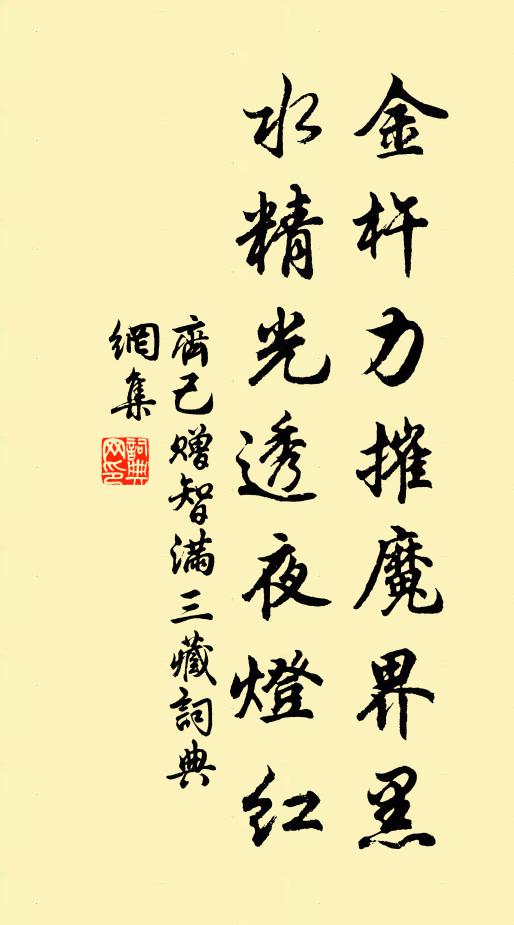 金杵力摧魔界黑
水精光透夜燈紅
齊己贈智滿三藏詞典
網集
詞典
网印